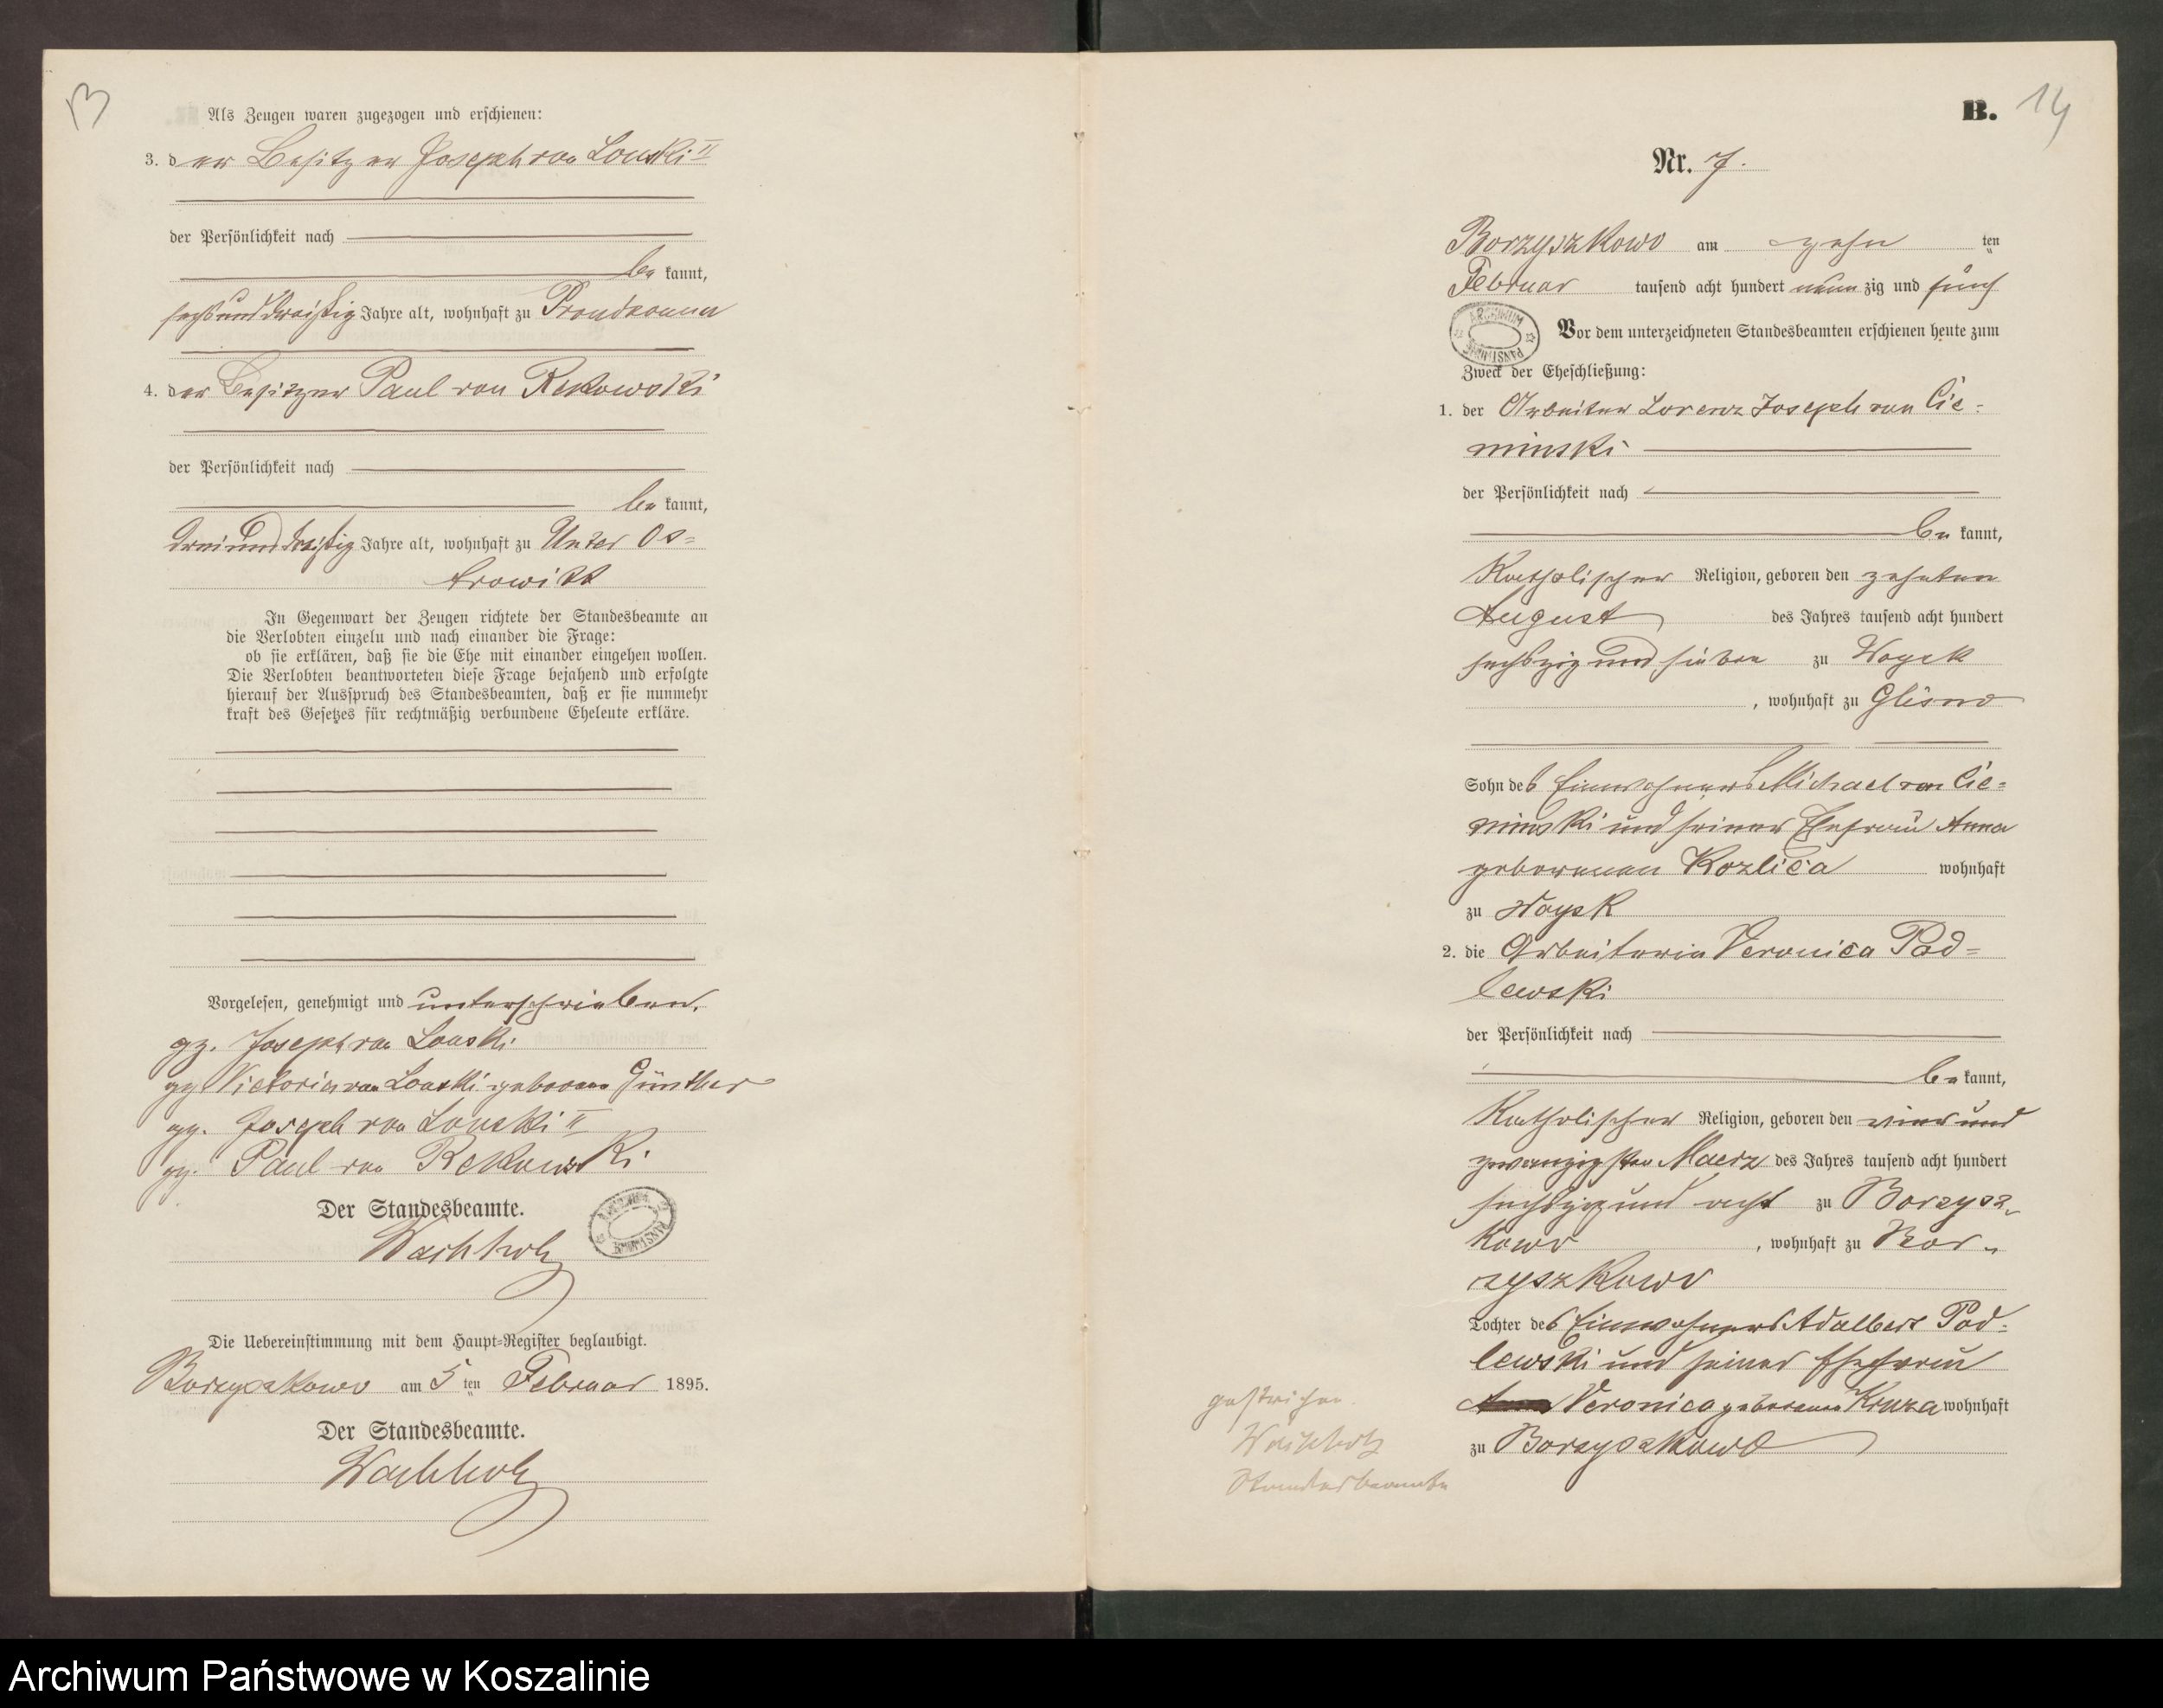 13
Als Zeugen waren zugezogen und erschienen:
3. der Besitzer Joseph von Lonski II
der Persönlichkeit nach
be kannt,
sechsunddreißig Jahre alt, wohnhaft zu Prondzonna
4. der Besitzer Paul von Rekowski
der Persönlichkeit nach
be kannt,
dreiunddreißig Jahre alt, wohnhaft zu Unter Os=
trowitt
In Gegenwart der Zeugen richtete der Standesbeamte an
die Verlobten einzeln und nach einander die Frage:
ob sie erklären, daß sie die Ehe mit einander eingehen wollen.
Die Verlobten beantworteten diese Frage bejahend und erfolgte
hierauf der Ausspruch des Standesbeamten, daß er sie nunmehr
kraft des Gesetzes für rechtmäßig verbundene Eheleute erkläre.
Vorgelesen, genehmigt und unterschrieben.
gz. Joseph von Lonski
gz Victoria von Lonski geborene Günther
gz. Joseph von Lonski II
gz. Paul von Rekowski
Der Standesbeamte.
Wachholz
Die Uebereinstimmung mit dem Haupt=Register beglaubigt.
Borzyszkowo am 5 ten Februar 1895.
Der Standesbeamte.
Wachholz
B. 14
Nr. 7.
Borzyszkowo am zehn ten
Februar tausend acht hundert neun zig und fünf
ARCHIWUM PAŃSTWOWE
Vor dem unterzeichneten Standesbeamten erschienen heute zum
Zweck der Eheschließung:
1. der Arbeiter Lorenz Joseph von Cie=
minski
der Persönlichkeit nach
be kannt,
Katholischer Religion, geboren den zehnten
August des Jahres tausend acht hundert
sechszig und sieben zu Woysk
, wohnhaft zu Glisno
Sohn des Einwohners Michael von Cie=
minski und seiner Ehefrau Anna
geborenen Kozlica wohnhaft
zu Woysk
2. die Arbeiterin Veronica Pod=
lewski
der Persönlichkeit nach
be kannt,
Katholischer Religion, geboren den vier und
zwanzigsten Maerz des Jahres tausend acht hundert
sechszig und acht zu Borzysz=
kowo , wohnhaft zu Bor=
zyszkowo
Tochter des Einwohners Adalbert Pod=
lewski und seiner Ehefrau
Veronica geborenen Kruza wohnhaft
zu Borzyszkowo
gestrichen.
Wachholz
Standesbeamte
Archiwum Państwowe w Koszalinie